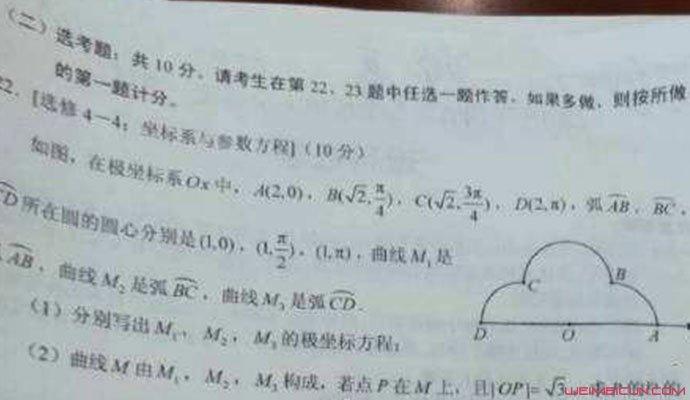 （二）选考题：共10分。请考生在第22、23题中任选一题作答。如果多做，则按所做
的第一题计分。
22. [选修4－4：坐标系与参数方程]（10分）
如图，在极坐标系Ox中，A(2,0)，B(√2,π/4)，C(√2,3π/4)，D(2,π)，弧AB，BC，
CD所在圆的圆心分别是(1,0)，(1,π/2)，(1,π)，曲线M₁是
AB，曲线M₂是弧BC，曲线M₃是弧CD.
（1）分别写出M₁，M₂，M₃的极坐标方程；
（2）曲线M由M₁，M₂，M₃构成，若点P在M上，且|OP|=√3
C
B
D
O
A
WEIMEILCUN.COM